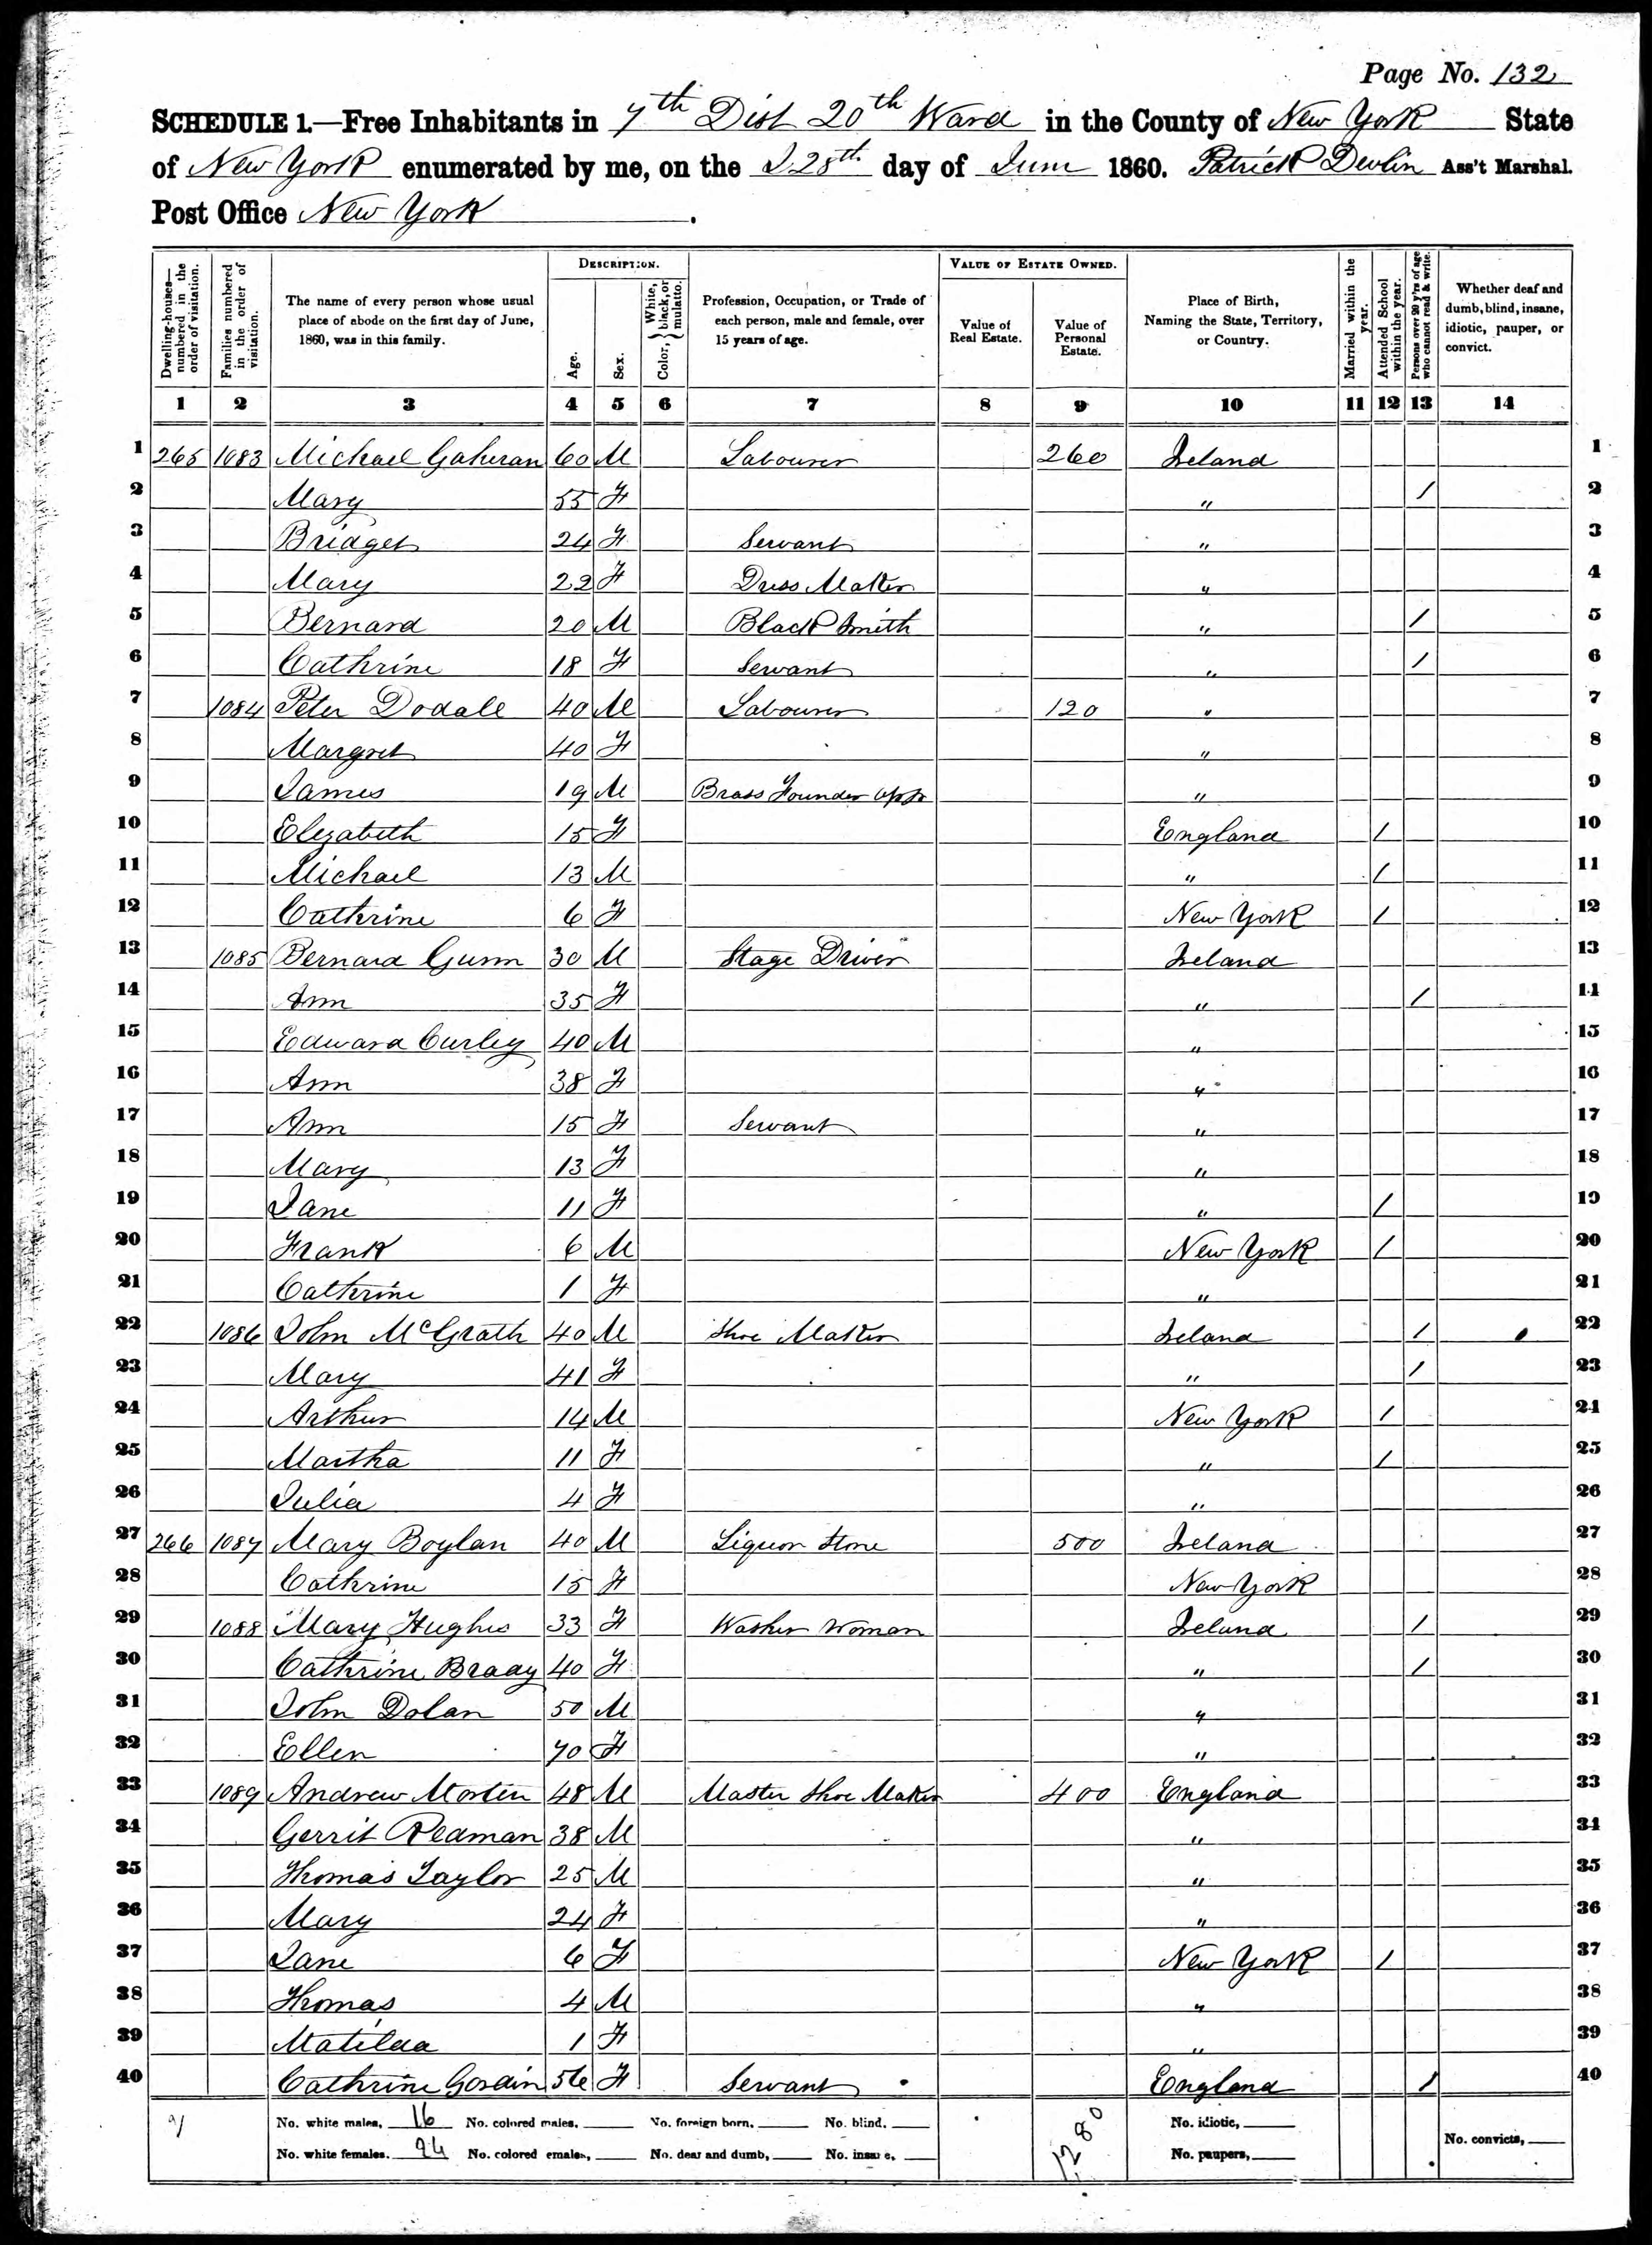 Page No. 132
SCHEDULE 1.—Free Inhabitants in 7th Dist 20th Ward in the County of New York State
of New York enumerated by me, on the 28th day of June 1860. Patrick Devlin Ass't Marshal.
Post Office New York.
Dwelling-houses—numbered in the order of visitation.
Families numbered in the order of visitation.
The name of every person whose usual place of abode on the first day of June, 1860, was in this family.
DESCRIPTION.
Age.
Sex.
Color, White, black, or mulatto.
Profession, Occupation, or Trade of each person, male and female, over 15 years of age.
VALUE OF ESTATE OWNED.
Value of Real Estate.
Value of Personal Estate.
Place of Birth, Naming the State, Territory, or Country.
Married within the year.
Attended School within the year.
Persons over 20 y'rs of age who cannot read & write.
Whether deaf and dumb, blind, insane, idiotic, pauper, or convict.
1 2 3 4 5 6 7 8 9 10 11 12 13 14
1 265 1083 Michael Gaheran 60 M Labourer 260 Ireland 1
2 Mary 55 F " / 2
3 Bridget 24 F Servant " 3
4 Mary 22 F Dress Maker " 4
5 Bernard 20 M Black Smith " / 5
6 Cathrine 18 F Servant " / 6
7 1084 Peter Dodale 40 M Labourer 120 " 7
8 Margret 40 F " 8
9 James 19 M Brass Founder " 9
10 Elezabeth 15 F England / 10
11 Michael 13 M " / 11
12 Cathrine 6 F New York / 12
13 1085 Bernard Gunn 30 M Stage Driver Ireland 13
14 Ann 35 F " / 14
15 Edward Curley 40 M " 15
16 Ann 38 F " 16
17 Ann 15 F Servant " 17
18 Mary 13 F " 18
19 Jane 11 F " / 19
20 Frank 6 M New York / 20
21 Cathrine 1 F " 21
22 1086 John McGrath 40 M Shoe Maker Ireland / 22
23 Mary 41 F " / 23
24 Arthur 14 M New York / 24
25 Martha 11 F " / 25
26 Julia 4 F " 26
27 266 1087 Mary Boylan 40 M Liquor Store 500 Ireland 27
28 Cathrine 15 F New York 28
29 1088 Mary Hughes 33 F Washer Woman Ireland / 29
30 Cathrine Brady 40 F " / 30
31 John Dolan 50 M " 31
32 Ellen 70 F " 32
33 1089 Andrew Morten 48 M Master Shoe Maker 400 England 33
34 Gerrit Redman 38 M " 34
35 Thomas Taylor 25 M " 35
36 Mary 24 F " 36
37 Jane 6 F New York / 37
38 Thomas 4 M " 38
39 Matilda 1 F " 39
40 Cathrine Gordin 56 F Servant England / 40
No. white males, 16 No. colored males, No. foreign born, No. blind, 1280 No. idiotic,
No. white females, 24 No. colored emales, No. deaf and dumb, No. insane, No. paupers, No. convicts,